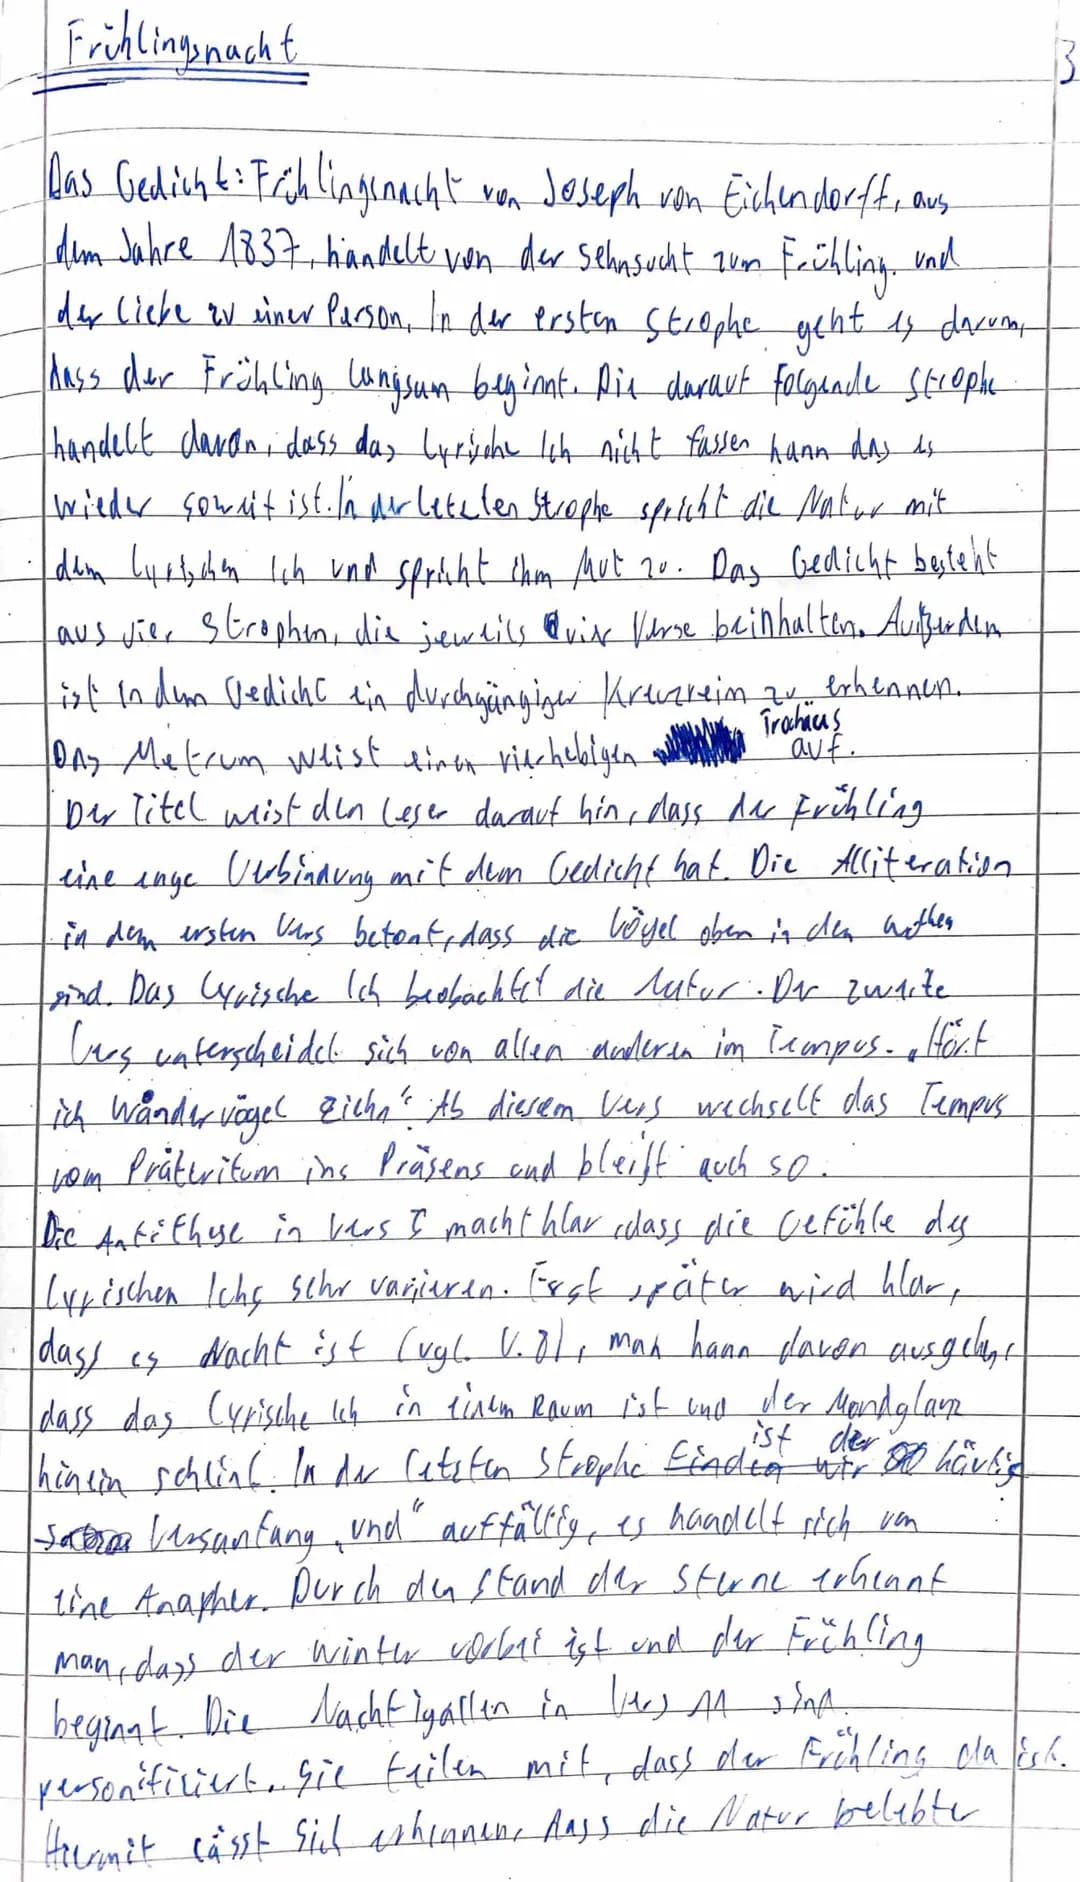 Frühlingsnacht
3
Das Gedicht: Frühlingsnacht von Joseph von Eichendorff, aus
dem Jahre 1837, handelt von der Sehnsucht zum Frühling, und
der Liebe zu einer Person. In der ersten Strophe geht es darum,
dass der Frühling langsam beginnt. Die darauf folgende Strophe
handelt davon, dass das Lyrische Ich nicht fassen kann das es
wieder soweit ist. In der letzten Strophe spricht die Natur mit
dem Lyrischen Ich und spricht ihm Mut zu. Das Gedicht besteht
aus vier Strophen, die jeweils vier Verse beinhalten. Außerdem
ist in dem Gedicht ein durchgängiger Kreuzreim zu erkennen.
Das Metrum weist einen vierhebigen Trochäus auf.
Der Titel weist den Leser darauf hin, dass der Frühling
eine enge Verbindung mit dem Gedicht hat. Die Alliteration
in dem ersten Vers betont, dass die Vögel oben in den
sind. Das Lyrische Ich beobachtet die Natur. Der zweite
Vers unterscheidet sich von allen anderen im Tempus. „Hört
ich Wandervögel ziehn“ Ab diesem Vers wechselt das Tempus
vom Präteritum ins Präsens und bleibt auch so.
Die Antithese in Vers 5 macht klar, dass die Gefühle des
Lyrischen Ichs sehr variieren. Erst später wird klar,
dass es Nacht ist (vgl. V. 8), man kann davon ausgehen
dass das Lyrische Ich in einem Raum ist und der Mondglanz
hinein scheint. In der letzten Strophe finden wir ist der häufig
Versanfang „und“ auffällig, es handelt sich um
eine Anapher. Durch den Stand der Sterne erkennt
man, dass der Winter vorbei ist und der Frühling
beginnt. Die Nachtigallen in Vers 11 sind
personifiziert. Sie teilen mit, dass der Frühling da ist.
Hiermit lässt sich erkennen, dass die Natur belebter